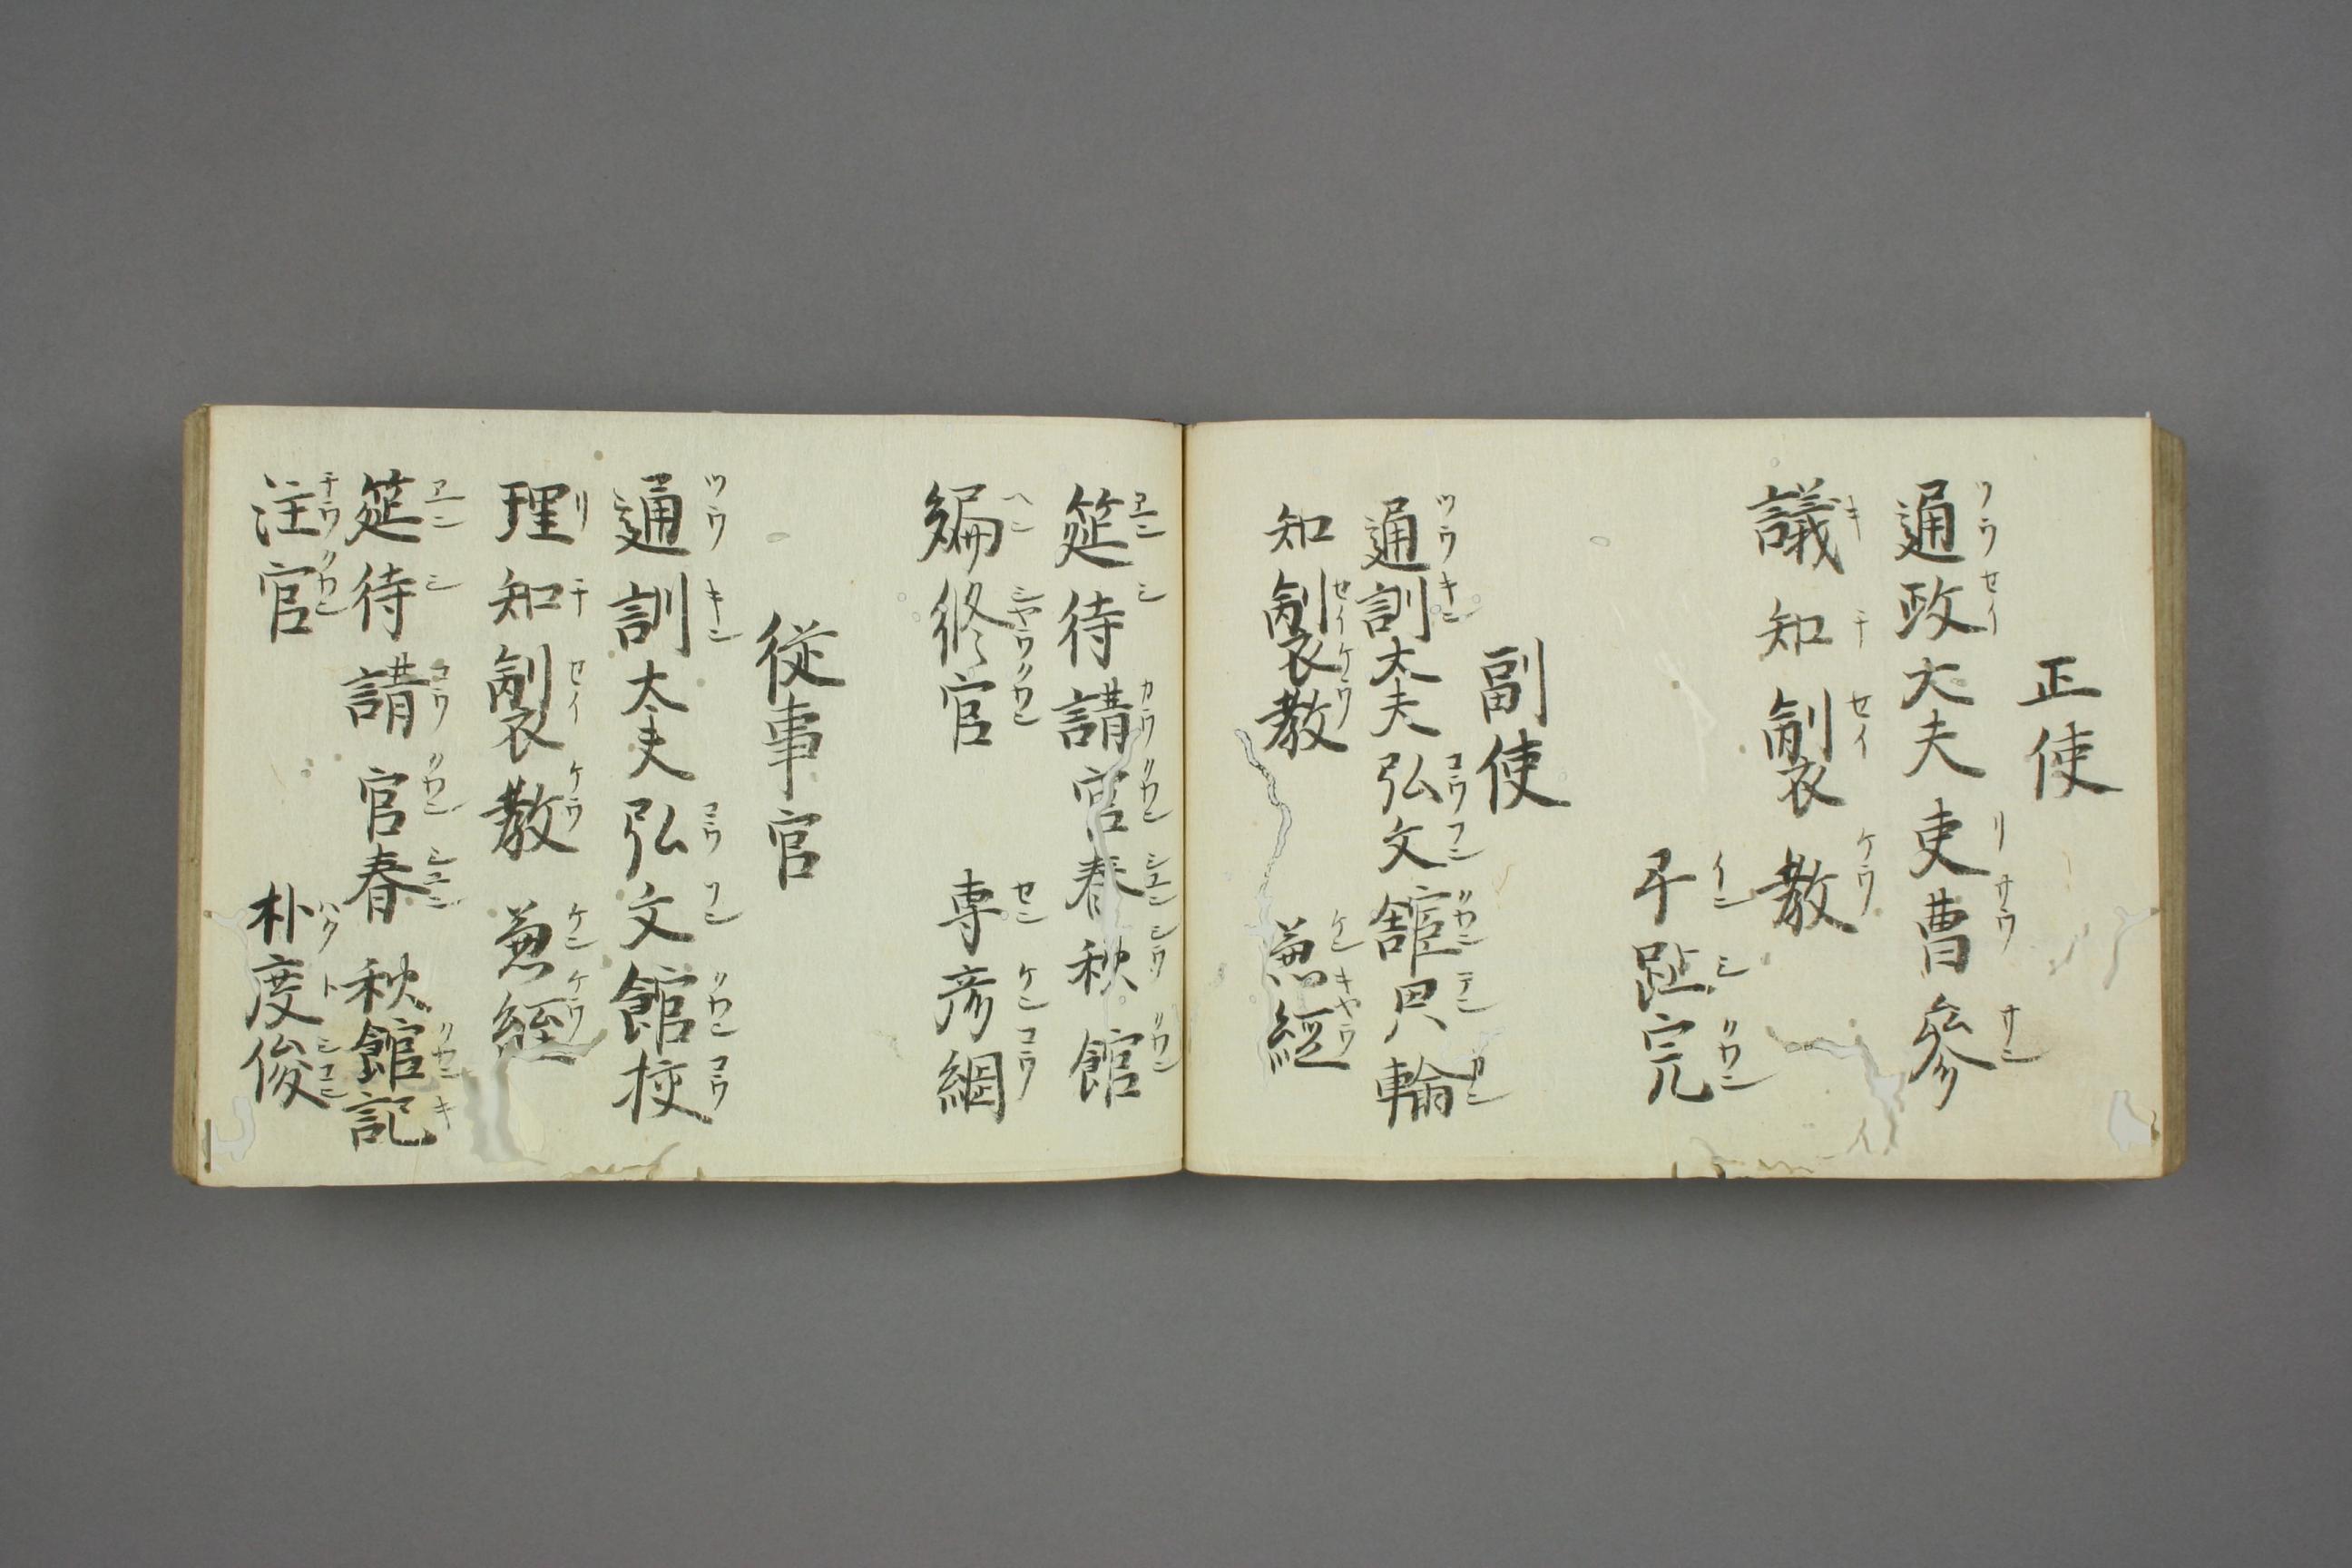 正使
通政大夫吏曹參
議知製教
尹趾完
副使
通訓大夫弘文舘典輸
知製教 兼經
筵待講官春秋館
編修官 専彦綱
従事官
通訓大夫弘文館校
理知製教兼經
筵待講官春秋館記
注官 朴度俊